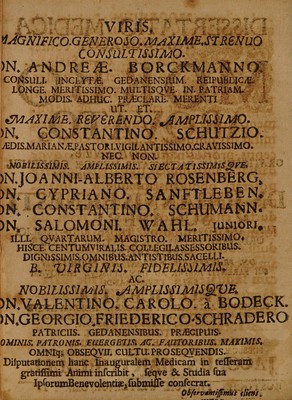 VIRIS,
MAGNIFICO.GENEROSO.MAXIME.STRENUO
CONSULTISSIMO.
DN. ANDREÆ. BORCKMANNO.
CONSULI. INCLYTÆ. GEDANENSIUM. REIPUBLICÆ.
LONGE. MERITISSIMO. MULTISQVE. IN. PATRIAM.
MODIS. ADHUC. PRÆCLARE. MERENTI
UT. ET.
MAXIME. REVERENDO. AMPLISSIMO.
DN. CONSTANTINO. SCHUTZIO.
ÆDIS.MARIANÆ.PASTORI.VIGILANTISSIMO.GRAVISSIMO.
NEC. NON.
NOBILISSIMIS. AMPLISSIMIS. SPECTATISSIMISQVE.
DN. JOANNI-ALBERTO ROSENBERG,
DN. CYPRIANO. SANFTLEBEN.
DN. CONSTANTINO. SCHUMANN.
DN. SALOMONI. WAHL, JUNIORI,
ILLI. QVARTARUM. MAGISTRO. MERITISSIMO,
HISCE. CENTUMVIRALIS. COLLEGII.ASSESSORIBUS.
DIGNISSIMIS.OMNIBUS.ANTISTIBUS.SACELLI.
B. VIRGINIS. FIDELISSIMIS.
AC.
NOBILISSIMIS. AMPLISSIMISQVE.
DN.VALENTINO. CAROLO. à BODECK.
DN.GEORGIO.FRIEDERICO-SCHRADERO
PATRICIIS. GEDANENSIBUS. PRÆCIPUIS.
DOMINIS. PATRONIS. EUERGETIS. AC. FAUTORIBUS. MAXIMIS,
OMNIq; OBSEQVII. CULTU. PROSEQVENDIS.
Disputationem hanc Inauguralem Medicam in tesseram
gratissimi Animi inscribit, seqve & Studia sua
IpsorumBenevolentiæ, submisse consecrat.
Observantissimus eliens,